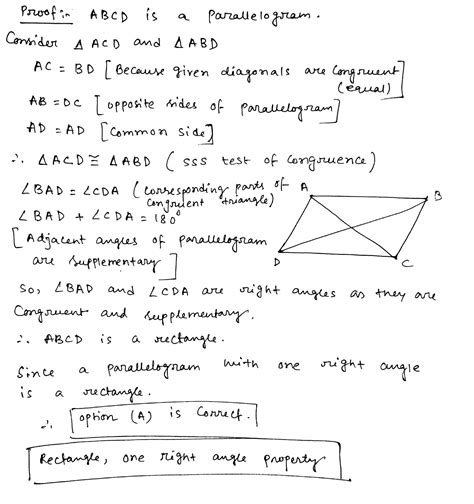 Proof:- ABCD is a parallelogram.
Consider Δ ACD and Δ ABD
AC = BD [Because given diagonals are congruent (equal)]
AB = DC [opposite sides of parallelogram]
AD = AD [Common side]
∴ ΔACD ≅ ΔABD (SSS test of congruence)
∠BAD = ∠CDA (corresponding parts of congruent triangle)
∠BAD + ∠CDA = 180°
[Adjacent angles of parallelogram
are supplementary]
A
B
D
C
So, ∠BAD and ∠CDA are right angles as they are
Congruent and supplementary.
∴ ABCD is a rectangle.
Since a parallelogram with one right angle
is a rectangle.
∴ option (A) is correct.
Rectangle, one right angle property